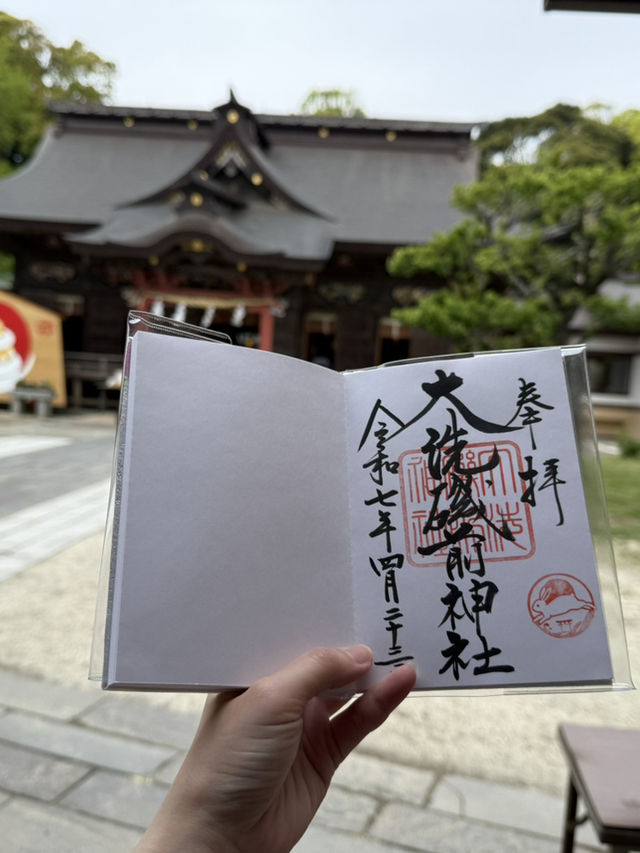 奉拝
大洗磯前神社
令和七年四月二十三